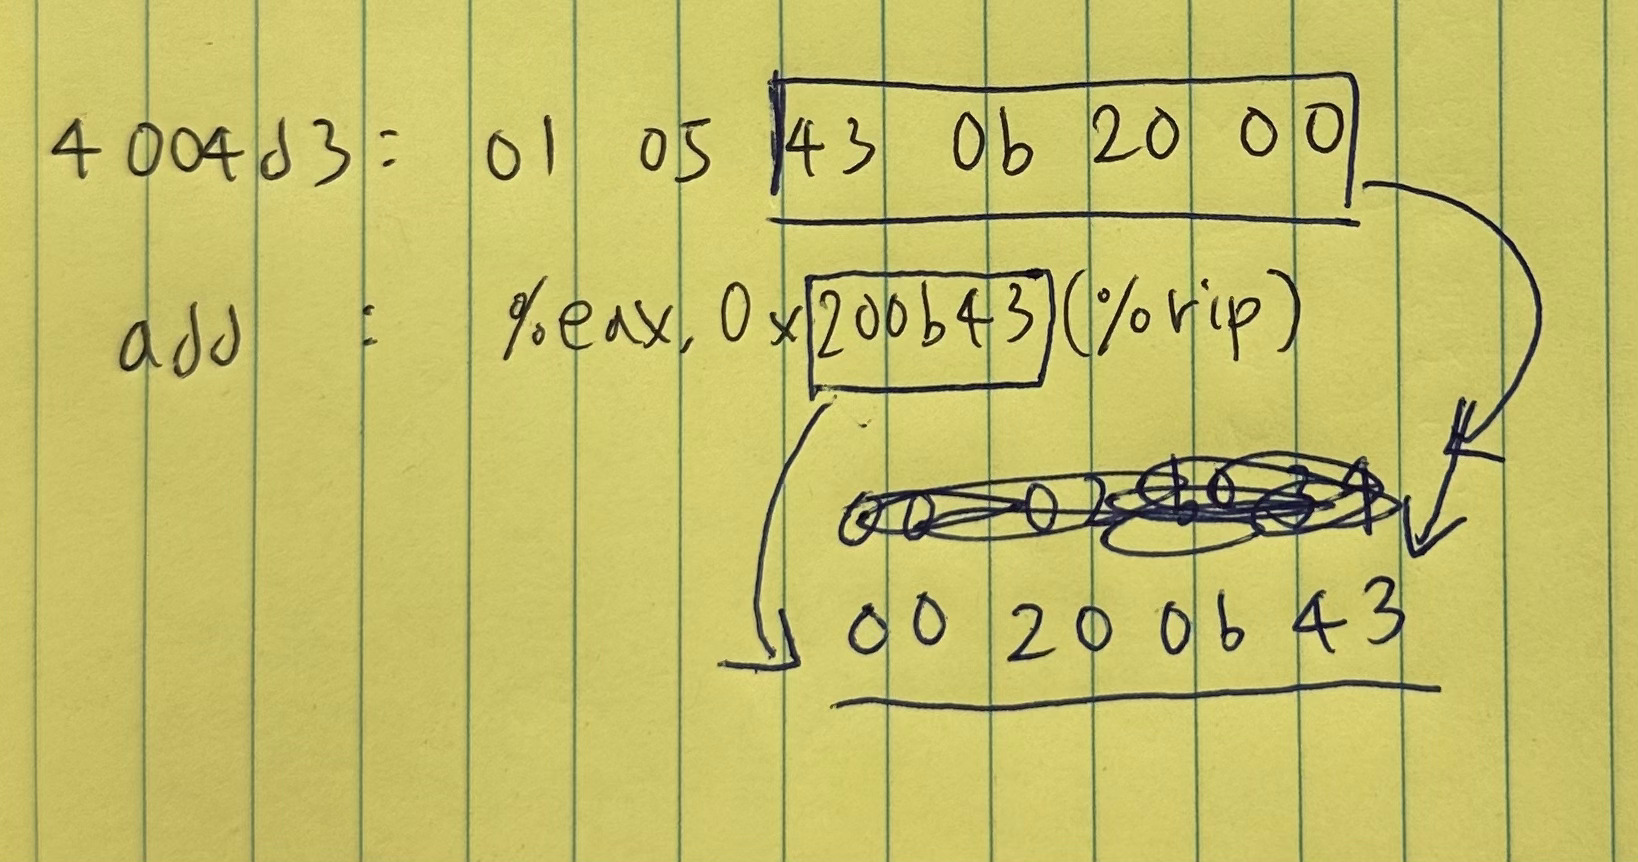 4004d3: 01 05 43 0b 20 00
add : %eax, 0x200b43(%rip)
00 20 0b 43